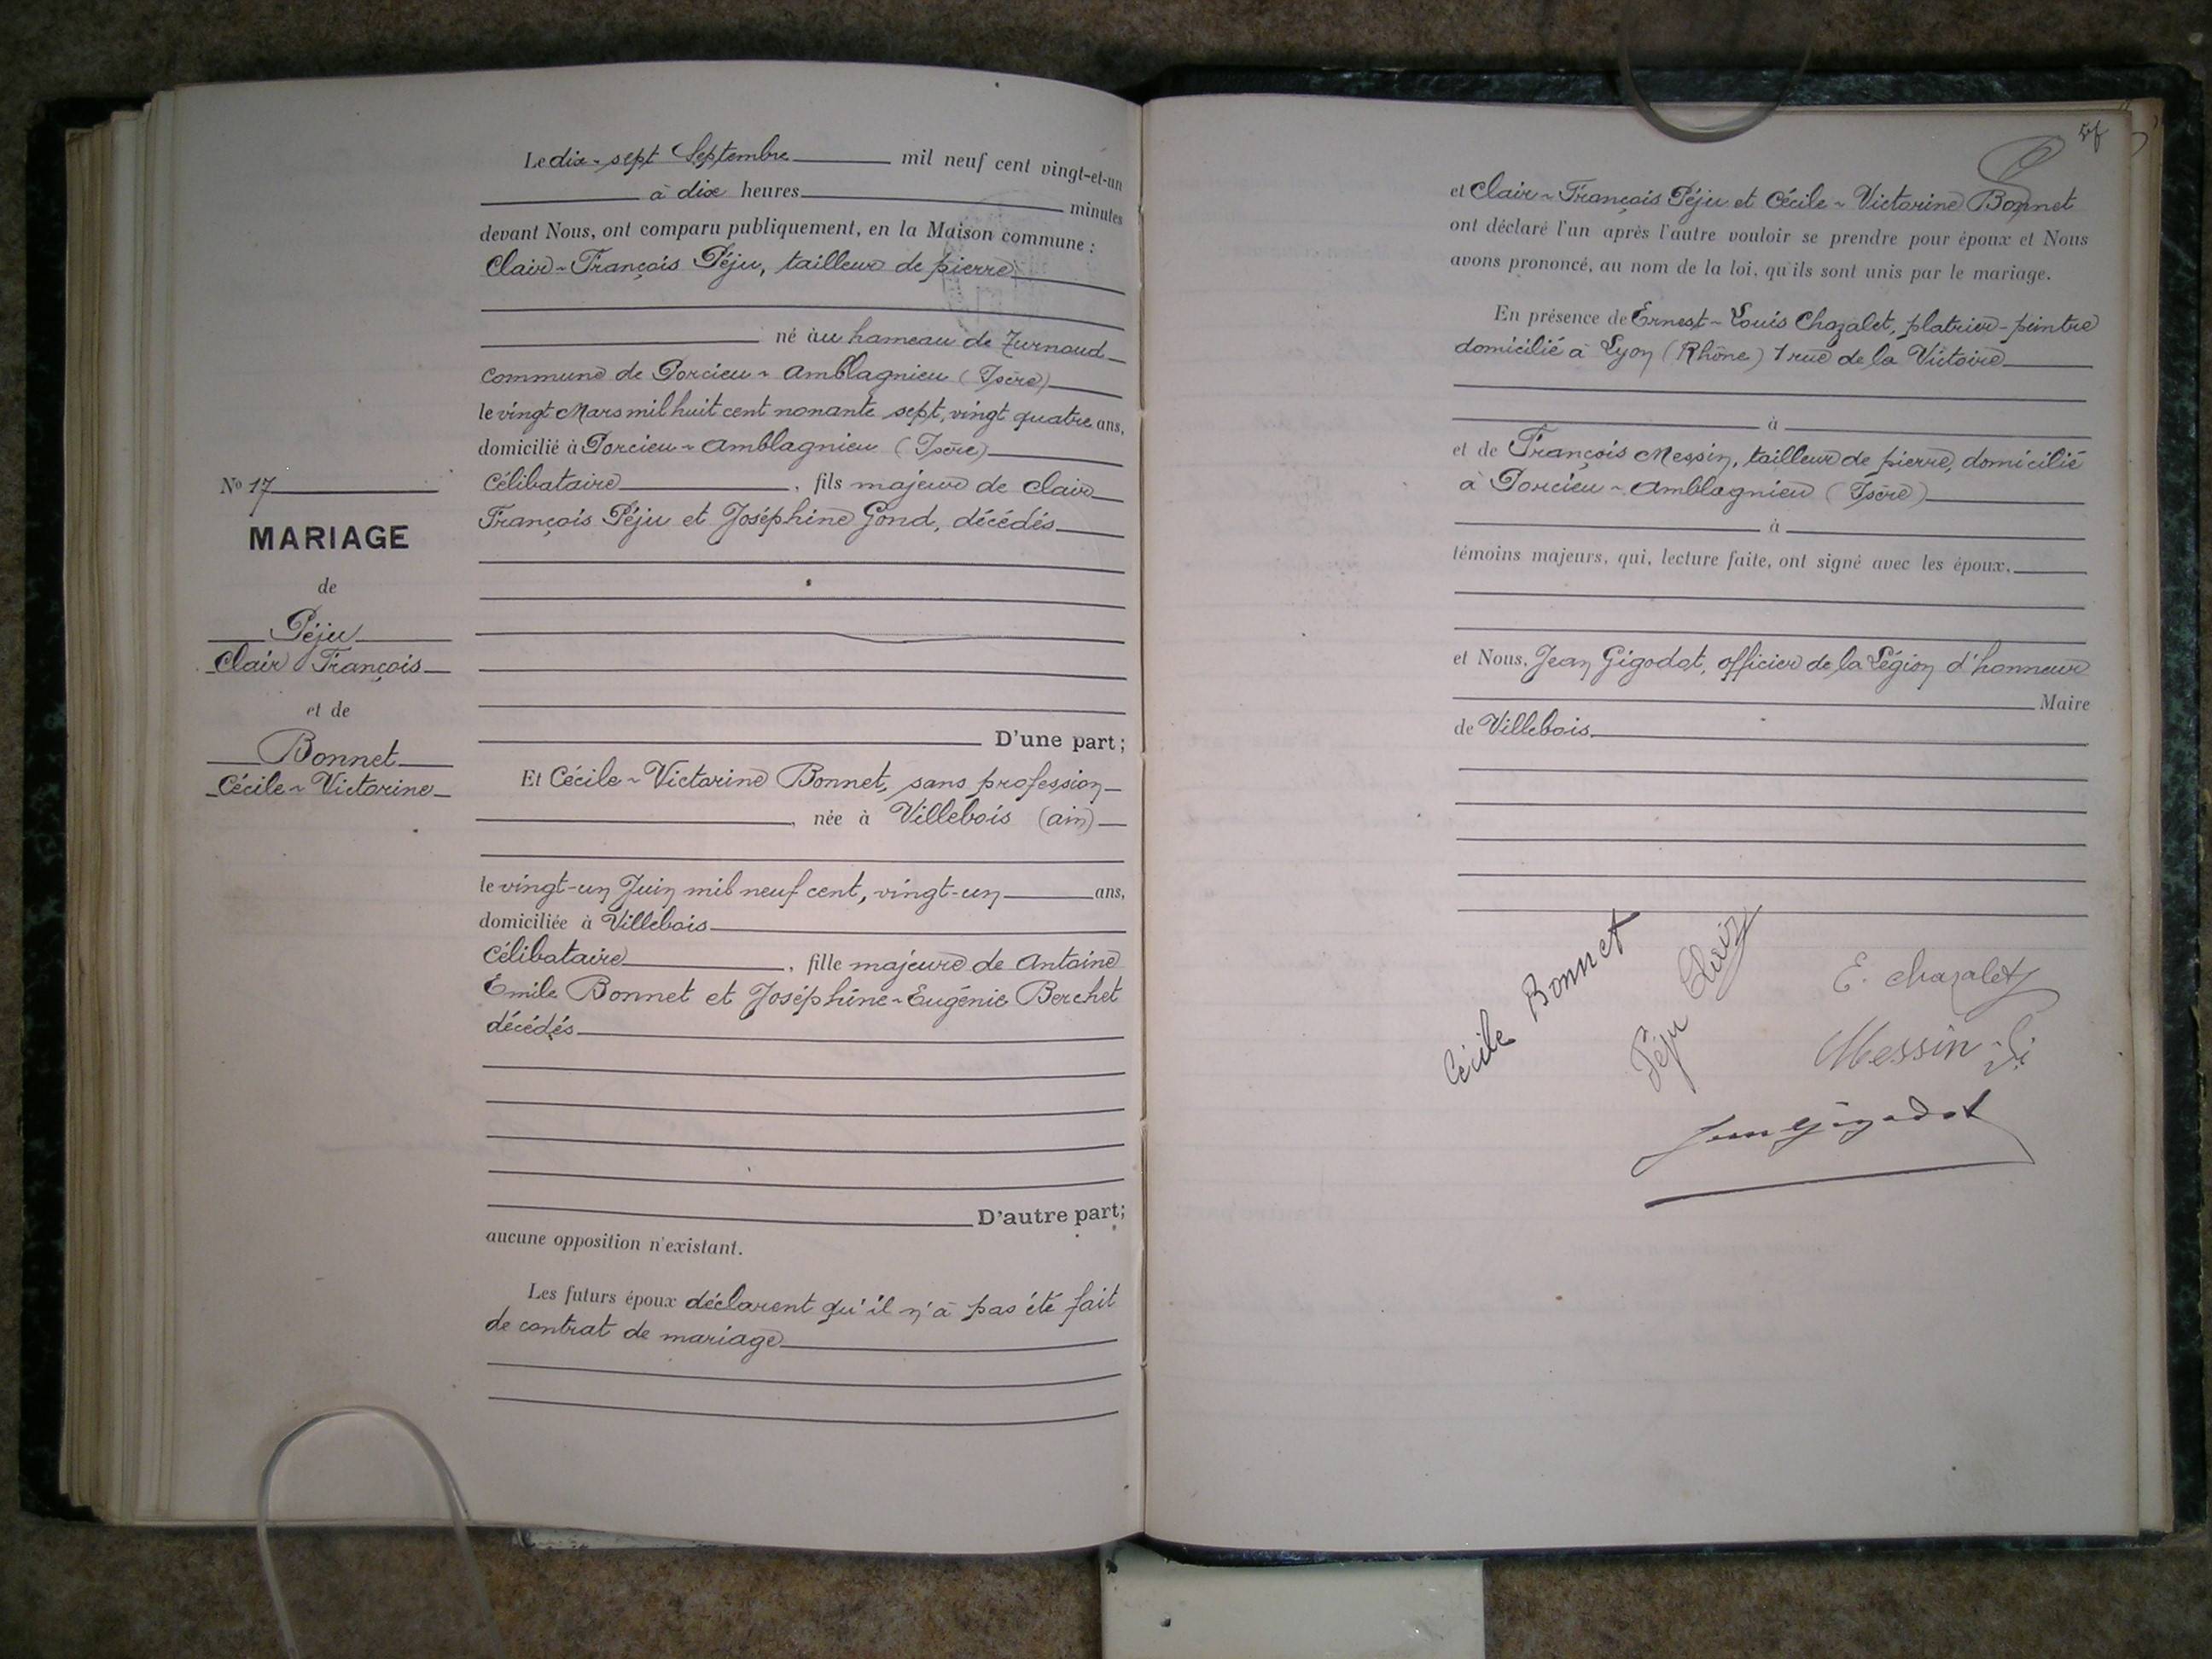 Le dix-sept Septembre mil neuf cent vingt-et-un
à dix heures minutes
devant Nous, ont comparu publiquement, en la Maison commune :
Clair-François Péju, tailleur de pierre
né àu hameau de Zurnoud
commune de Porcieu-Amblagnieu (Isère)
le vingt Mars mil huit cent nonante sept, vingt quatre ans,
domicilié à Porcieu-Amblagnieu (Isère)
Célibataire, fils majeur de Clair
François Péju et Joséphine Gond, décédés
D'une part ;
Et Cécile-Victorine Bonnet, sans profession
, née à Villebois (ain)
le vingt-un Juin mil neuf cent, vingt-un ans,
domiciliée à Villebois
Célibataire, fille majeure de Antoine
Emile Bonnet et Joséphine-Eugénie Berchet
décédés
D'autre part;
aucune opposition n'existant.
Les futurs époux déclarent qu'il n'à pas été fait
de contrat de mariage
No 17
MARIAGE
de
Péju
Clair François
et de
Bonnet
Cécile-Victorine
et Clair-François Péju et Cécile-Victorine Bonnet
ont déclaré l'un après l'autre vouloir se prendre pour époux et Nous
avons prononcé, au nom de la loi, qu'ils sont unis par le mariage.
En présence de Ernest-Louis Chazalet, platrier-peintre
domicilié à Lyon (Rhône) 1 rue de la Victoire
à
et de François Messin, tailleur de pierre, domicilié
à Porcieu-Amblagnieu (Isère)
à
témoins majeurs, qui, lecture faite, ont signé avec les époux,
et Nous, Jean Gigodot, officier de la Légion d'honneur
Maire
de Villebois
Cécile Bonnet
Péju Clair
E. Chazalet
Messin
Jean Gigodot